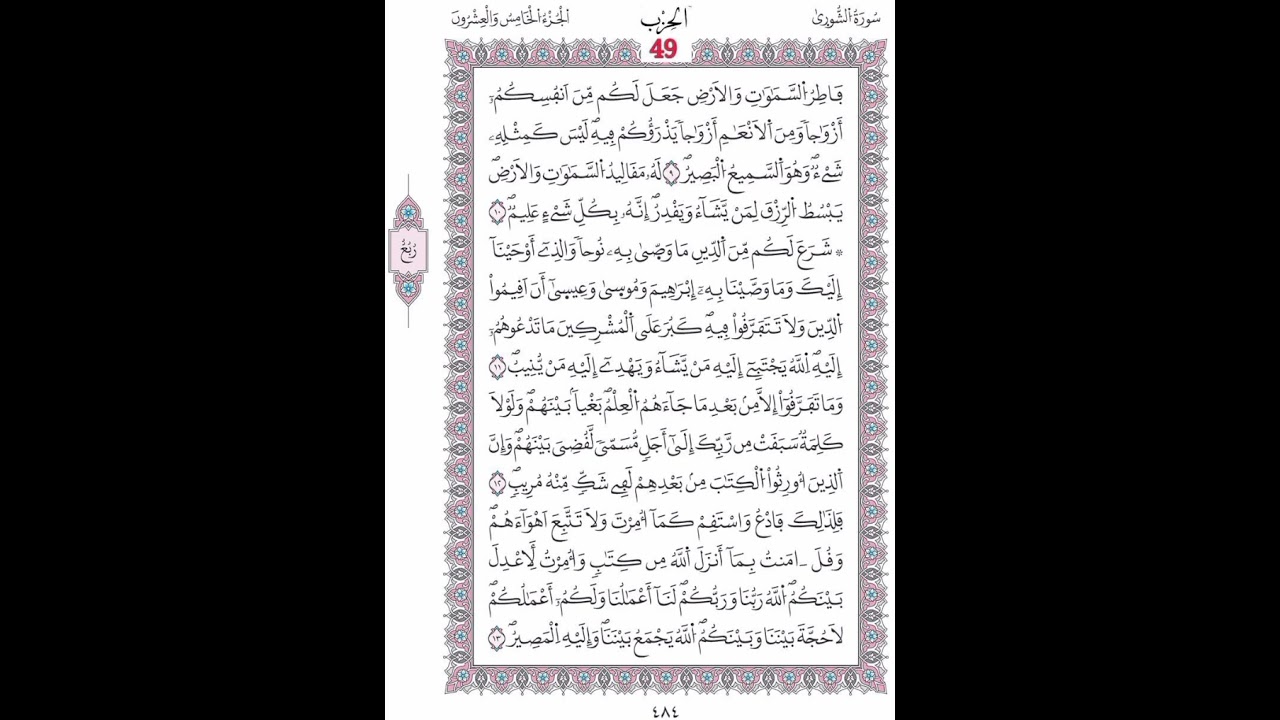 سُورَةُ الشُّورَىٰ
الحِزْب
الجُزْءُ الخَامِسُ وَالعِشْرُونَ
49
فَاطِرُ السَّمَٰوَٰتِ وَالَارْضِ جَعَلَ لَكُم مِّنَ اَنفُسِكُمُۥٓ
أَزْوَٰجاٗ وَمِنَ اَلَانْعَٰمِ أَزْوَٰجاٗ يَذْرَؤُكُمْ فِيهِۖ لَيْسَ كَمِثْلِهِۦ
شَےْءٞۖ وَهُوَ اَلسَّمِيعُ اُلْبَصِيرُۖ ٩ لَهُۥ مَقَالِيدُ السَّمَٰوَٰتِ وَالَارْضِۖ
يَبْسُطُ اُلرِّزْقَ لِمَنْ يَّشَآءُ وَيَقْدِرُۖ إِنَّهُۥ بِكُلِّ شَےْءٍ عَلِيمٞۖ ١٠
۞ شَرَعَ لَكُم مِّنَ اَلدِّينِ مَا وَصّ۪ىٰ بِهِۦ نُوحاٗ وَالذِےٓ أَوْحَيْنَآ
إِلَيْكَ وَمَا وَصَّيْنَا بِهِۦٓ إِبْرَٰهِيمَ وَمُوس۪ىٰ وَعِيس۪ىٰٓ أَنَ اَقِيمُواْ
اُلدِّينَ وَلَا تَتَفَرَّقُواْ فِيهِۖ كَبُرَ عَلَى اَلْمُشْرِكِينَ مَا تَدْعُوهُمُۥٓ
إِلَيْهِۖ اِللَّهُ يَجْتَبِےٓ إِلَيْهِ مَنْ يَّشَآءُ وَيَهْدِےٓ إِلَيْهِ مَنْ يُّنِيبُۖ ١١
وَمَا تَفَرَّقُوٓاْ إِلَّا مِنۢ بَعْدِ مَا جَآءَهُمُ اُلْعِلْمُ بَغْياَۢ بَيْنَهُمْۖ وَلَوْلَا
كَلِمَةٞ سَبَقَتْ مِن رَّبِّكَ إِلَىٰٓ أَجَلٖ مُّسَمّىٗ لَّقُضِىَ بَيْنَهُمْۖ وَإِنَّ
اَلذِينَ أُورِثُواْ اُلْكِتَٰبَ مِنۢ بَعْدِهِمْ لَفِے شَكّٖ مِّنْهُ مُرِيبٖۖ ١٢
فَلِذَٰلِكَ فَادْعُ وَاسْتَقِمْ كَمَآ أُمِرْتَ وَلَا تَتَّبِعَ اَهْوَآءَهُمْۖ
وَقُلَ ـ امَنتُ بِمَآ أَنزَلَ اَللَّهُ مِن كِتَٰبٖ وَأُمِرْتُ لِأَعْدِلَ
بَيْنَكُمُۖ اُللَّهُ رَبُّنَا وَرَبُّكُمْۖ لَنَآ أَعْمَٰلُنَا وَلَكُمُۥٓ أَعْمَٰلُكُمْۖ
لَا حُجَّةَ بَيْنَنَا وَبَيْنَكُمُۖ اُللَّهُ يَجْمَعُ بَيْنَنَاۖ وَإِلَيْهِ اِلْمَصِيرُۖ ١٣
رُبُعُ
٤٨٤